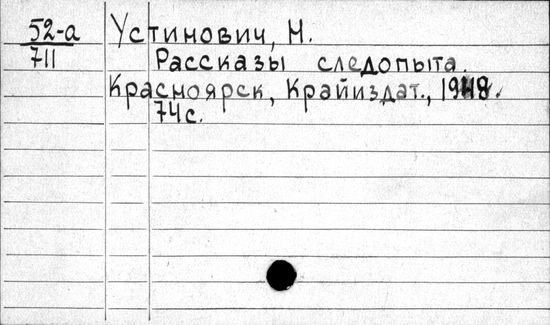 52-а
711
Устинович, Н.
Рассказы следопыта.
Красноярск, Крайиздат., 1948.
74с.